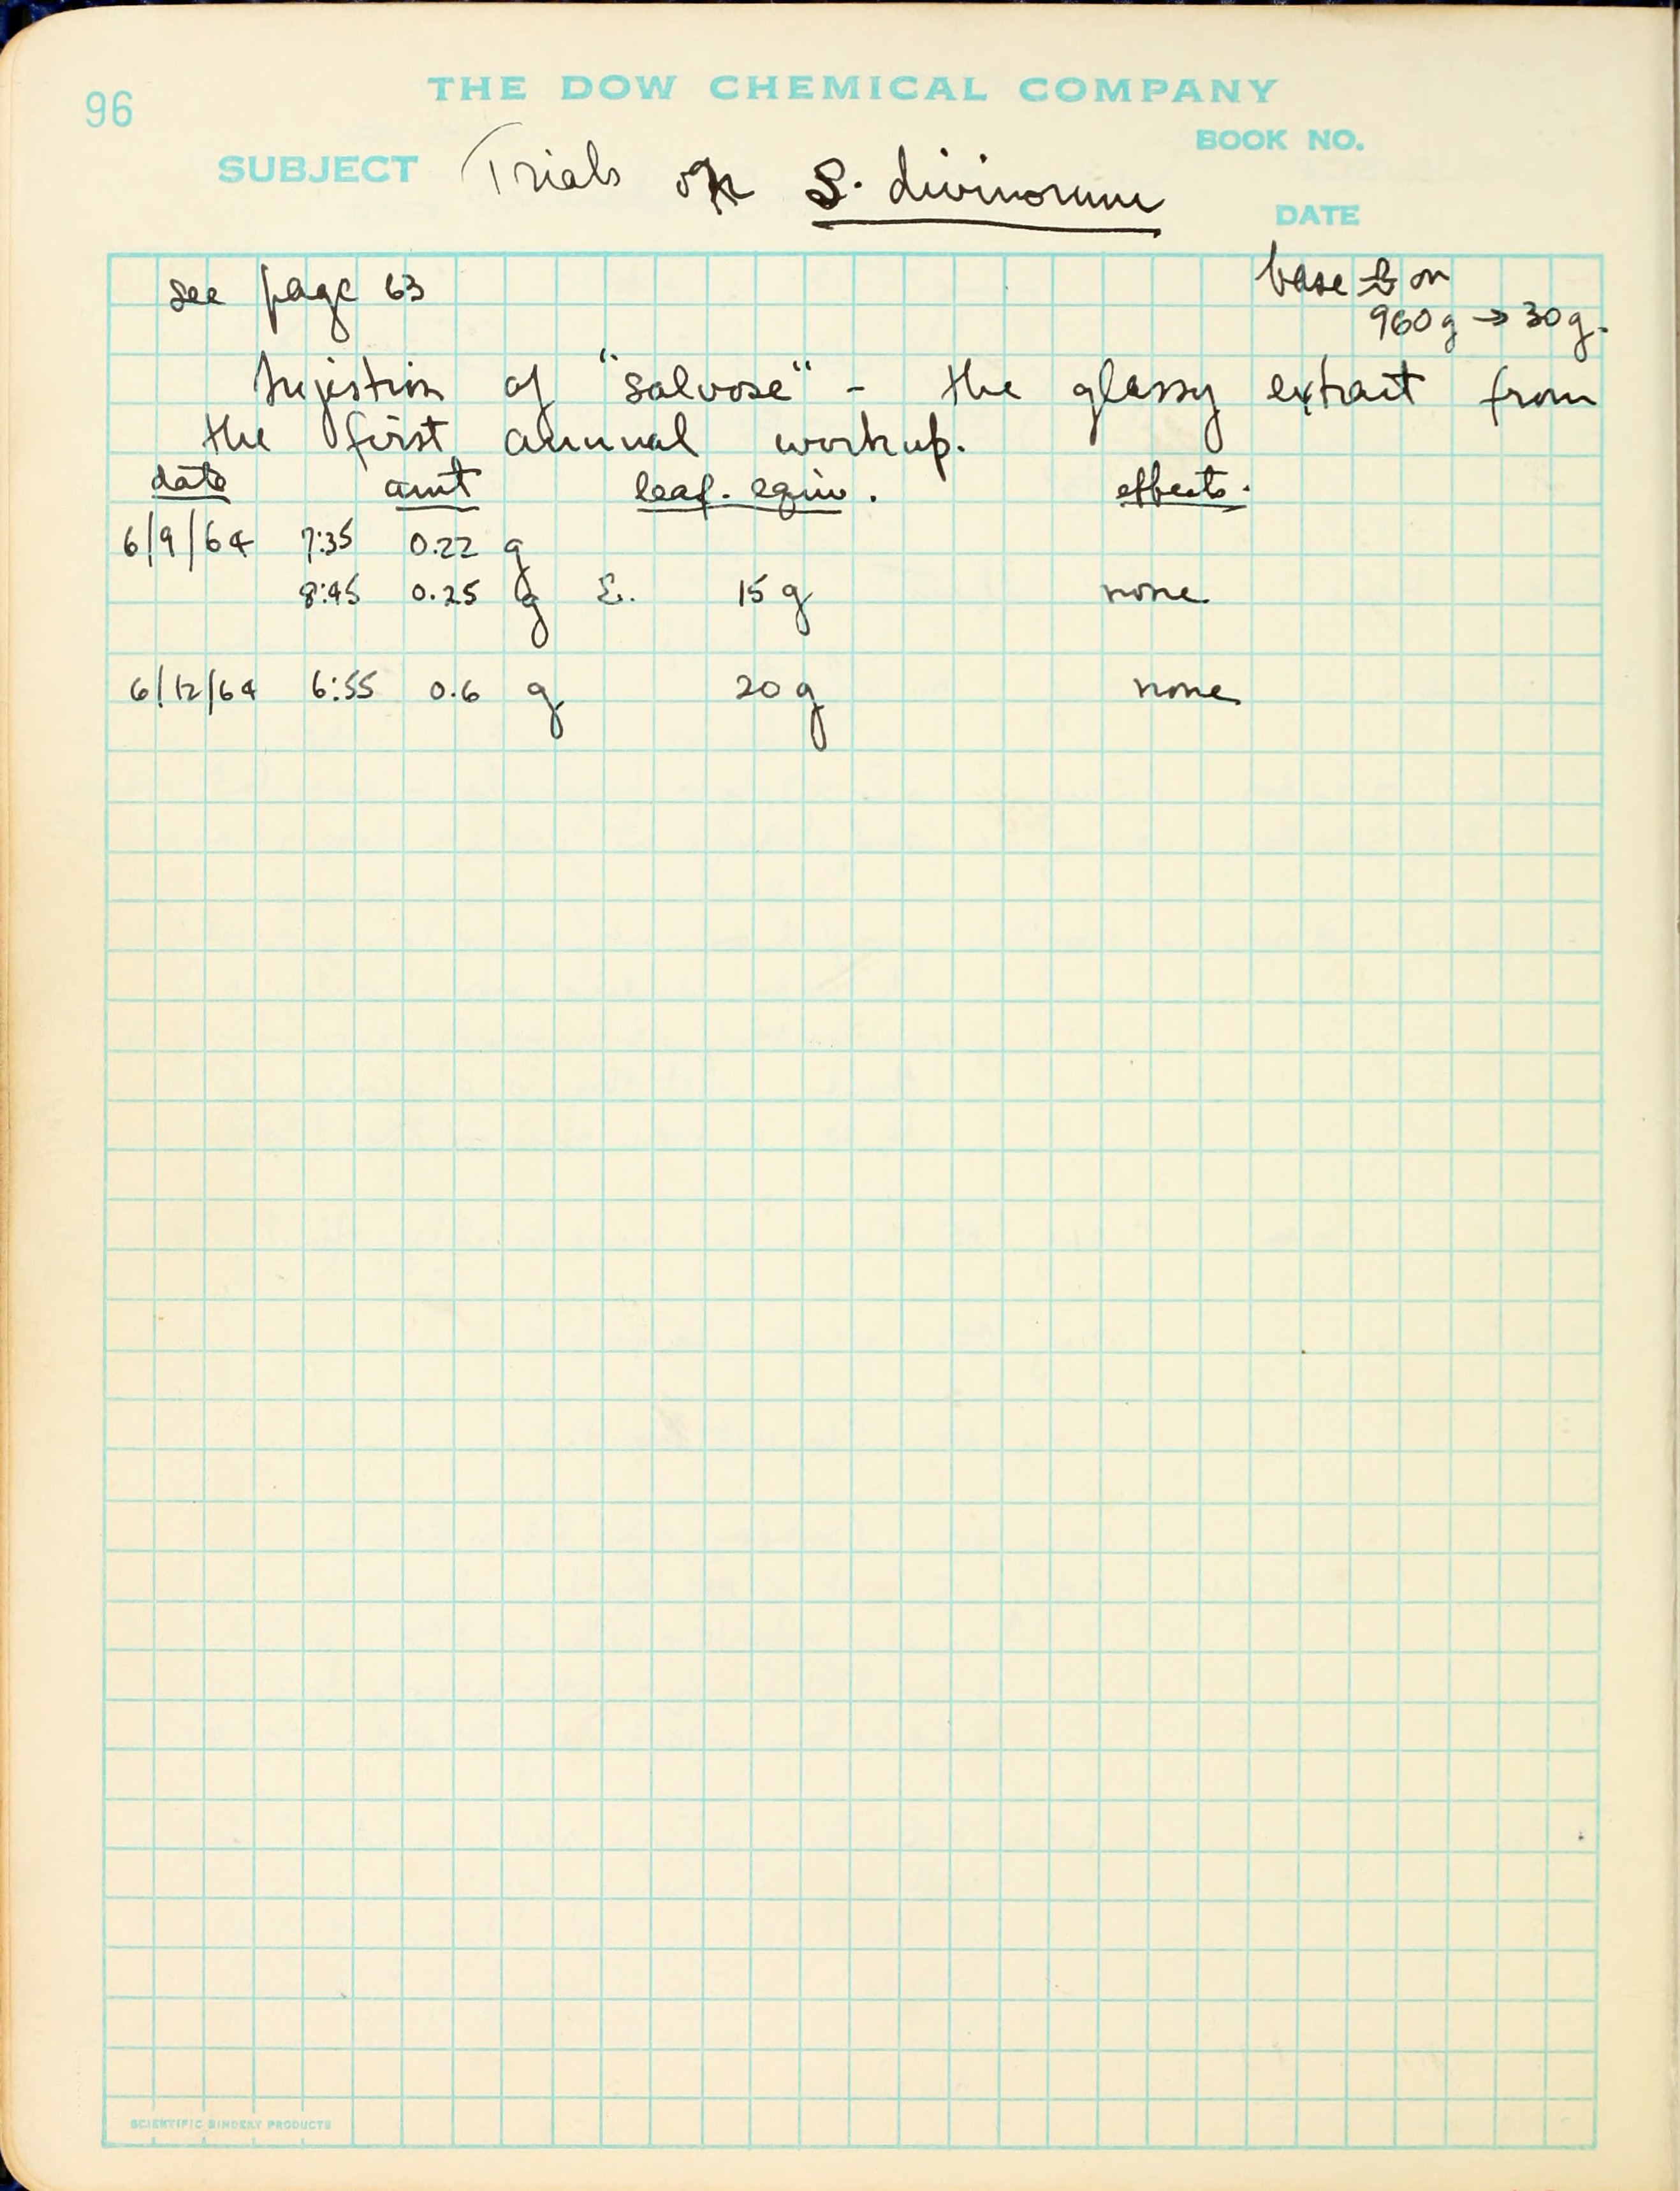 96
THE DOW CHEMICAL COMPANY
BOOK NO.
SUBJECT Trials on S. divinorum
DATE
see page 63
base on
960g → 30g.
Injestion of "salvose" - the glassy extract from
the first annual workup.
date amt leaf. equiv. effects.
6/9/64 7:35 0.22 g
8:45 0.25 g Σ. 15 g none
6/12/64 6:55 0.6 g 20 g none
SCIENTIFIC BINDERY PRODUCTS